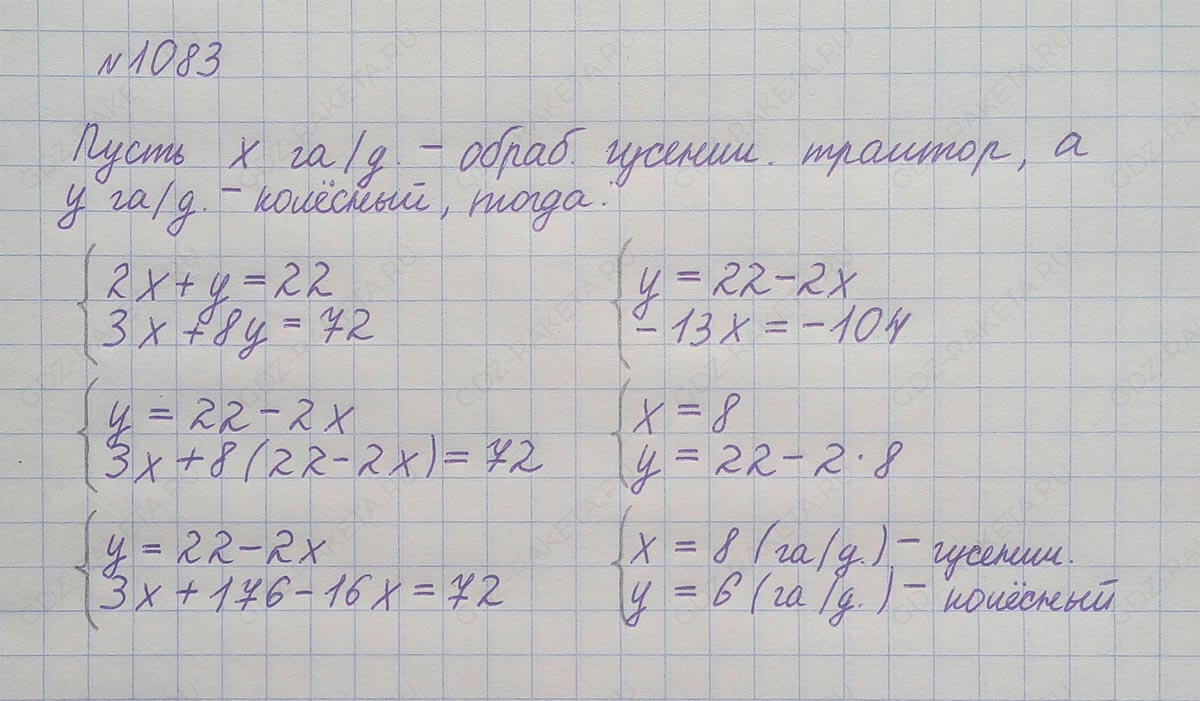 №1083
Пусть x га/д. – обраб. гусениц. трактор, а
y га/д. – колёсный, тогда:
2x + y = 22
3x + 8y = 72
y = 22 – 2x
3x + 8(22 – 2x) = 72
y = 22 – 2x
3x + 176 – 16x = 72
y = 22 – 2x
– 13x = – 104
x = 8
y = 22 – 2 · 8
x = 8 (га/д.) – гусениц.
y = 6 (га/д.) – колёсный
GDZ-RAKETA.RU